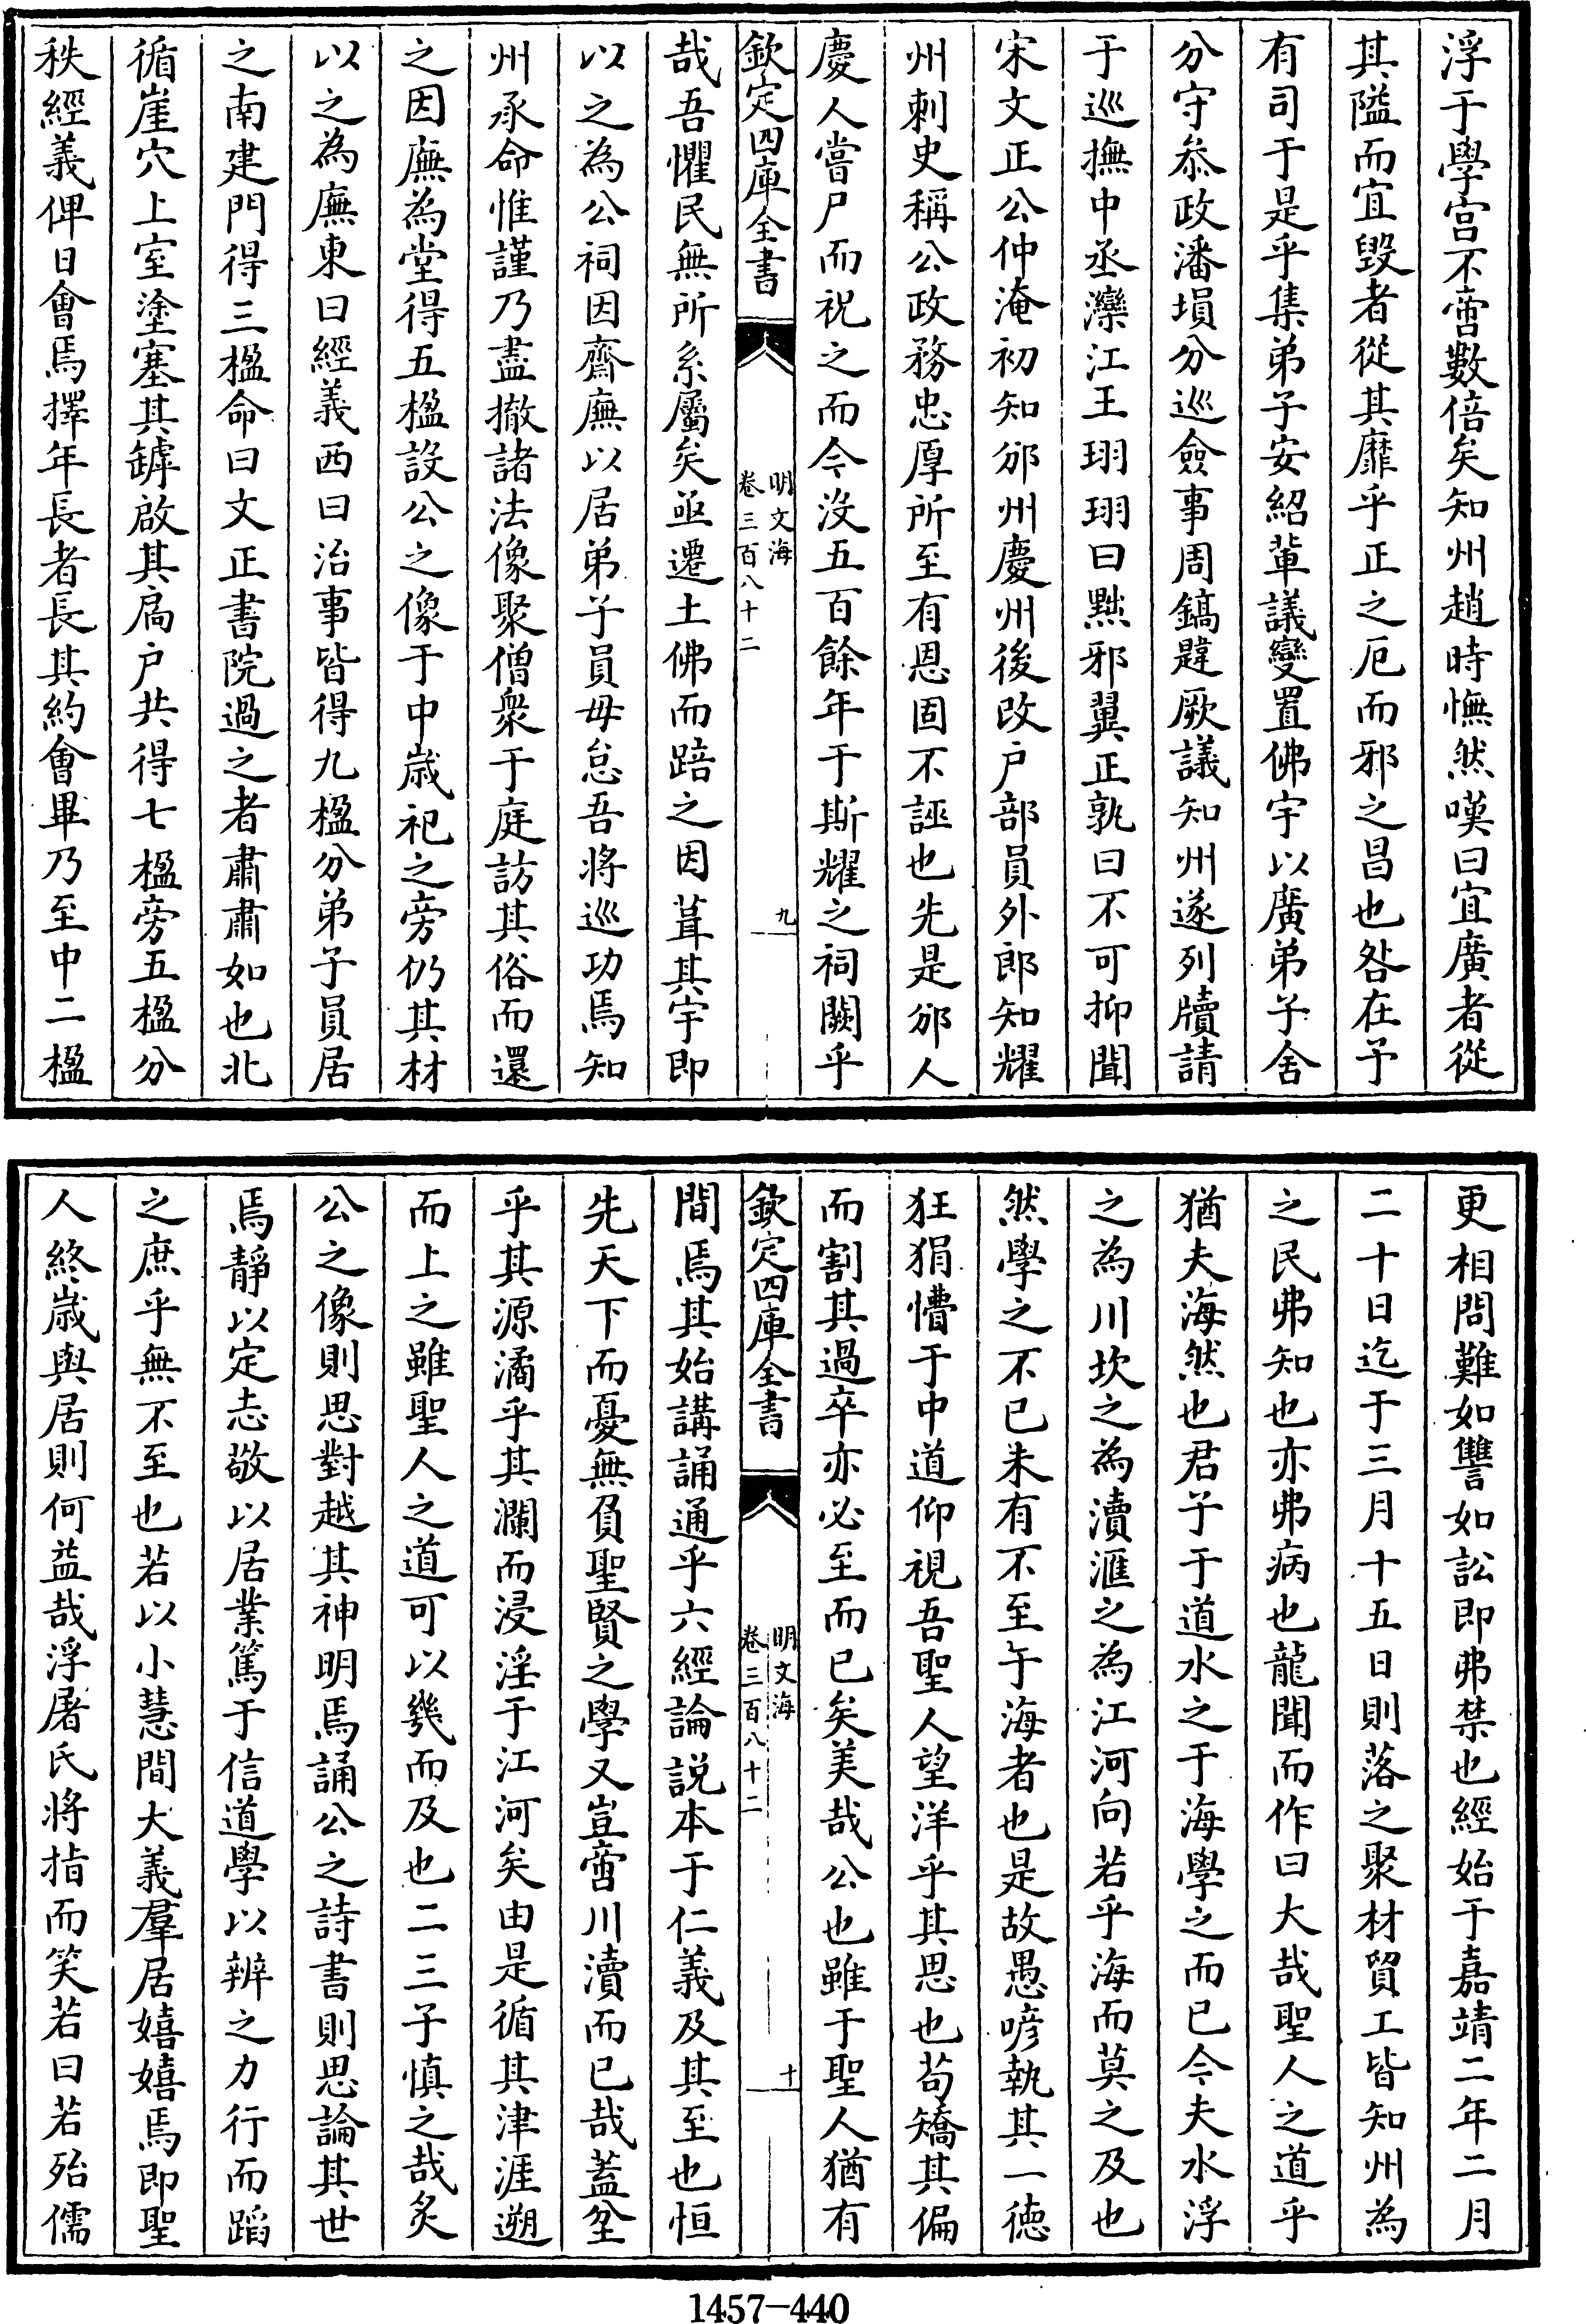 浮于學宫不啻數倍矣知州趙時憮然嘆曰宜廣者從
其隘而宜毁者從其靡乎正之厄而邪之昌也咎在予
有司于是乎集弟子安紹軰議變置佛宇以廣弟子舍
分守叅政潘塤分巡僉事周鎬韙厥議知州遂列牘請
于巡撫中丞灤江王珝珝曰黜邪翼正孰曰不可抑聞
宋文正公仲淹初知邠州慶州後改户部員外郎知耀
州刺史稱公政務忠厚所至有恩固不誣也先是邠人
慶人嘗尸而祝之而今没五百餘年于斯耀之祠闕乎
欽定四庫全書
明文海
卷三百八十二
九
哉吾懼民無所系屬矣亟遷土佛而踣之因葺其宇即
以之為公祠因齋廡以居弟子員毋怠吾将巡功焉知
州承命惟謹乃盡撤諸法像聚僧衆于庭訪其俗而還
之因廡為堂得五楹設公之像于中歳祀之旁仍其材
以之為廡東曰經義西曰治事皆得九楹分弟子員居
之南建門得三楹命曰文正書院過之者肅肅如也北
循崖穴上室塗塞其罅啟其扃户共得七楹旁五楹分
秩經義俾日會焉擇年長者長其約會畢乃至中二楹
更相問難如讐如訟即弗禁也經始于嘉靖二年二月
二十日迄于三月十五日則落之聚材貿工皆知州為
之民弗知也亦弗病也龍聞而作曰大哉聖人之道乎
猶夫海然也君子于道水之于海學之而已今夫水浮
之為川坎之為瀆滙之為江河向若乎海而莫之及也
然學之不已未有不至于海者也是故愚喭執其一徳
狂狷懵于中道仰視吾聖人望洋乎其思也茍矯其偏
而割其過卒亦必至而已矣美哉公也雖于聖人猶有
欽定四庫全書
明文海
卷三百八十二
十
間焉其始講誦通乎六經論說本于仁義及其至也恒
先天下而憂無負聖賢之學又豈啻川瀆而已哉蓋坌
乎其源潏乎其瀾而浸淫于江河矣由是循其津涯遡
而上之雖聖人之道可以幾而及也二三子慎之哉炙
公之像則思對越其神明焉誦公之詩書則思論其世
焉靜以定志敬以居業篤于信道學以辨之力行而蹈
之庶乎無不至也若以小慧間大義羣居嬉嬉焉即聖
人終歳與居則何益哉浮屠氏将指而笑若曰若殆儒
1457-440